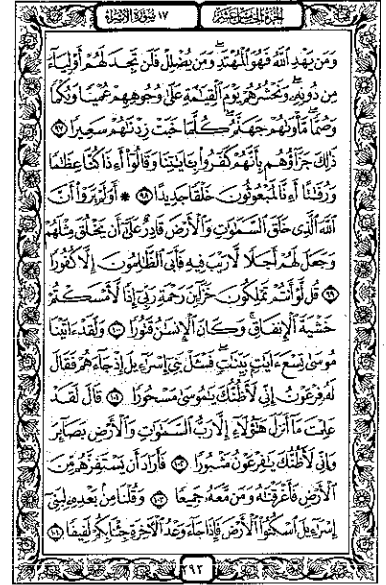 ١٧ سورة الإسراء الجزء الخامس عشر
وَمَن يَهْدِ ٱللَّهُ فَهُوَ ٱلْمُهْتَدِ وَمَن يُضْلِلْ فَلَن تَجِدَ لَهُمْ أَوْلِيَآءَ
مِن دُونِهِۦ وَنَحْشُرُهُمْ يَوْمَ ٱلْقِيَٰمَةِ عَلَىٰ وُجُوهِهِمْ عُمْيًا وَبُكْمًا
وَصُمًّا مَّأْوَىٰهُمْ جَهَنَّمُ كُلَّمَا خَبَتْ زِدْنَٰهُمْ سَعِيرًا ٩٧
ذَٰلِكَ جَزَآؤُهُم بِأَنَّهُمْ كَفَرُوا۟ بِـَٔايَٰتِنَا وَقَالُوٓا۟ أَءِذَا كُنَّا عِظَٰمًا
وَرُفَٰتًا أَءِنَّا لَمَبْعُوثُونَ خَلْقًا جَدِيدًا ٩٨ * أَوَلَمْ يَرَوْا۟ أَنَّ
ٱللَّهَ ٱلَّذِى خَلَقَ ٱلسَّمَٰوَٰتِ وَٱلْأَرْضَ قَادِرٌ عَلَىٰٓ أَن يَخْلُقَ مِثْلَهُمْ
وَجَعَلَ لَهُمْ أَجَلًا لَّا رَيْبَ فِيهِ فَأَبَى ٱلظَّٰلِمُونَ إِلَّا كُفُورًا
٩٩ قُل لَّوْ أَنتُمْ تَمْلِكُونَ خَزَآئِنَ رَحْمَةِ رَبِّىٓ إِذًا لَّأَمْسَكْتُمْ
خَشْيَةَ ٱلْإِنفَاقِ وَكَانَ ٱلْإِنسَٰنُ قَتُورًا ١٠٠ وَلَقَدْ ءَاتَيْنَا
مُوسَىٰ تِسْعَ ءَايَٰتٍۭ بَيِّنَٰتٍ فَسْـَٔلْ بَنِىٓ إِسْرَٰٓءِيلَ إِذْ جَآءَهُمْ فَقَالَ
لَهُۥ فِرْعَوْنُ إِنِّى لَأَظُنُّكَ يَٰمُوسَىٰ مَسْحُورًا ١٠١ قَالَ لَقَدْ
عَلِمْتَ مَآ أَنزَلَ هَٰٓؤُلَآءِ إِلَّا رَبُّ ٱلسَّمَٰوَٰتِ وَٱلْأَرْضِ بَصَآئِرَ
وَإِنِّى لَأَظُنُّكَ يَٰفِرْعَوْنُ مَثْبُورًا ١٠٢ فَأَرَادَ أَن يَسْتَفِزَّهُم مِّنَ
ٱلْأَرْضِ فَأَغْرَقْنَٰهُ وَمَن مَّعَهُۥ جَمِيعًا ١٠٣ وَقُلْنَا مِنۢ بَعْدِهِۦ لِبَنِىٓ
إِسْرَٰٓءِيلَ ٱسْكُنُوا۟ ٱلْأَرْضَ فَإِذَا جَآءَ وَعْدُ ٱلْءَاخِرَةِ جِئْنَا بِكُمْ لَفِيفًا ١٠٤
٢٩٢